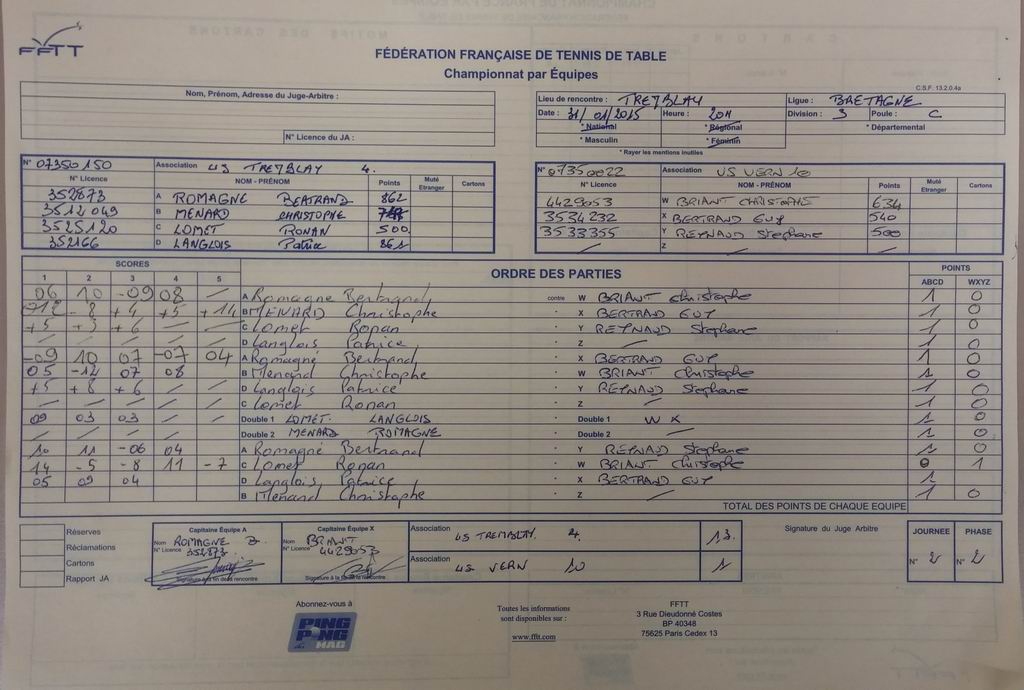 FFTT
FÉDÉRATION FRANÇAISE DE TENNIS DE TABLE
Championnat par Équipes
C.S.F. 13.2.0.4a
Nom, Prénom, Adresse du Juge-Arbitre :
N° Licence du JA :
Lieu de rencontre : TREMBLAY Ligue : BRETAGNE
Date : 31/01/2015 Heure : 20H Division : 3 Poule : C
* National * Régional * Départemental
* Masculin * Féminin
* Rayer les mentions inutiles
N° 07350150 Association US TREMBLAY 4.
N° Licence NOM - PRÉNOM Points Muté Etranger Cartons
352873 A ROMAGNE BERTRAND 862
3512049 B MENARD CHRISTOPHE
3525120 C LOMET RONAN 500
352166 D LANGLOIS Patrice 861
N° 07350022 Association US VERN 10
N° Licence NOM - PRÉNOM Points Muté Etranger Cartons
4429053 W BRIANT CHRISTOPHE 634
3534232 X BERTRAND GUY 540
3533355 Y REYNAUD Stephane 500
Z /
SCORES ORDRE DES PARTIES POINTS
1 2 3 4 5 ABCD WXYZ
06 10 -09 08 / A Romagne Bertrand contre W BRIANT Christophe 1 0
012 -8 +4 +5 +14 B MENARD Christophe X BERTRAND GUY 1 0
+5 +3 +6 / / C Lomet Ronan Y REYNAUD Stephane 1 0
/ / / / / D Langlois Patrice Z / 1 0
-09 10 07 -07 04 A Romagné Bertrand X BERTRAND GUY 1 0
05 -12 07 08 B Menard Christophe W BRIANT Christophe 1 0
+5 +8 +6 / / D Langlois Patrice Y REYNAUD Stephane 1 0
/ / / / / C Lomet Ronan Z / 1 0
09 03 03 / / Double 1 LOMET - LANGLOIS W X 1 0
/ / / / / Double 2 MENARD ROMAGNE Double 2 / 1 0
10 11 -06 04 A Romagné Bertrand Y REYNAUD Stephane 1 0
14 -5 -8 11 -7 C Lomet Ronan W BRIANT Christophe 0 1
05 09 04 D Langlois, Patrice X BERTRAND GUY 1
B Menard Christophe Z / 1 0
TOTAL DES POINTS DE CHAQUE EQUIPE
Réserves
Réclamations
Cartons
Rapport JA
Capitaine Équipe A
Nom ROMAGNE B.
N° Licence 352873
Signature à la fin de la rencontre
Capitaine Équipe X
Nom BRIANT
N° Licence 4429053
Signature à la fin de la rencontre
Association US TREMBLAY 4. 13.
Association US VERN 10 1
Signature du Juge Arbitre
JOURNEE PHASE
N° 2 N° 2
Abonnez-vous à
PING PONG MAG
Toutes les informations
sont disponibles sur :
www.fftt.com
FFTT
3 Rue Dieudonné Costes
BP 40348
75625 Paris Cedex 13